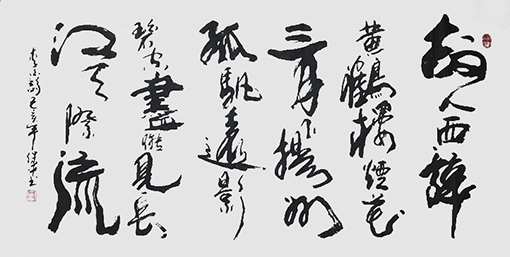 故人西辭
黄鶴樓煙花
三月下揚州
孤帆遠影
碧空盡唯見長
江天際流
李白詩己丑年